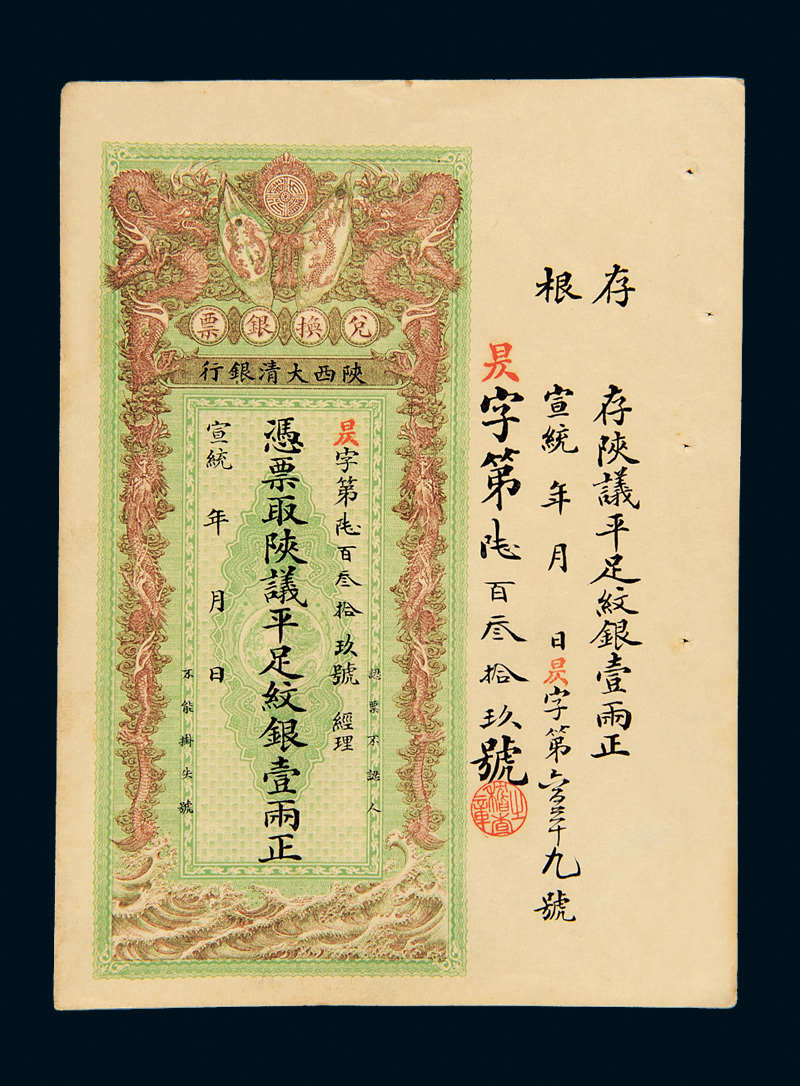 存根
存陝議平足紋銀壹兩正
宣統 年 月 日 昃字第六百三十九號
昃字第陸百叁拾玖號
稽查之章
兌換銀票
陝西大清銀行
認票不認人
昃字第陸百叁拾玖號 經理
憑票取陝議平足紋銀壹兩正
宣統 年 月 日
不能掛失號